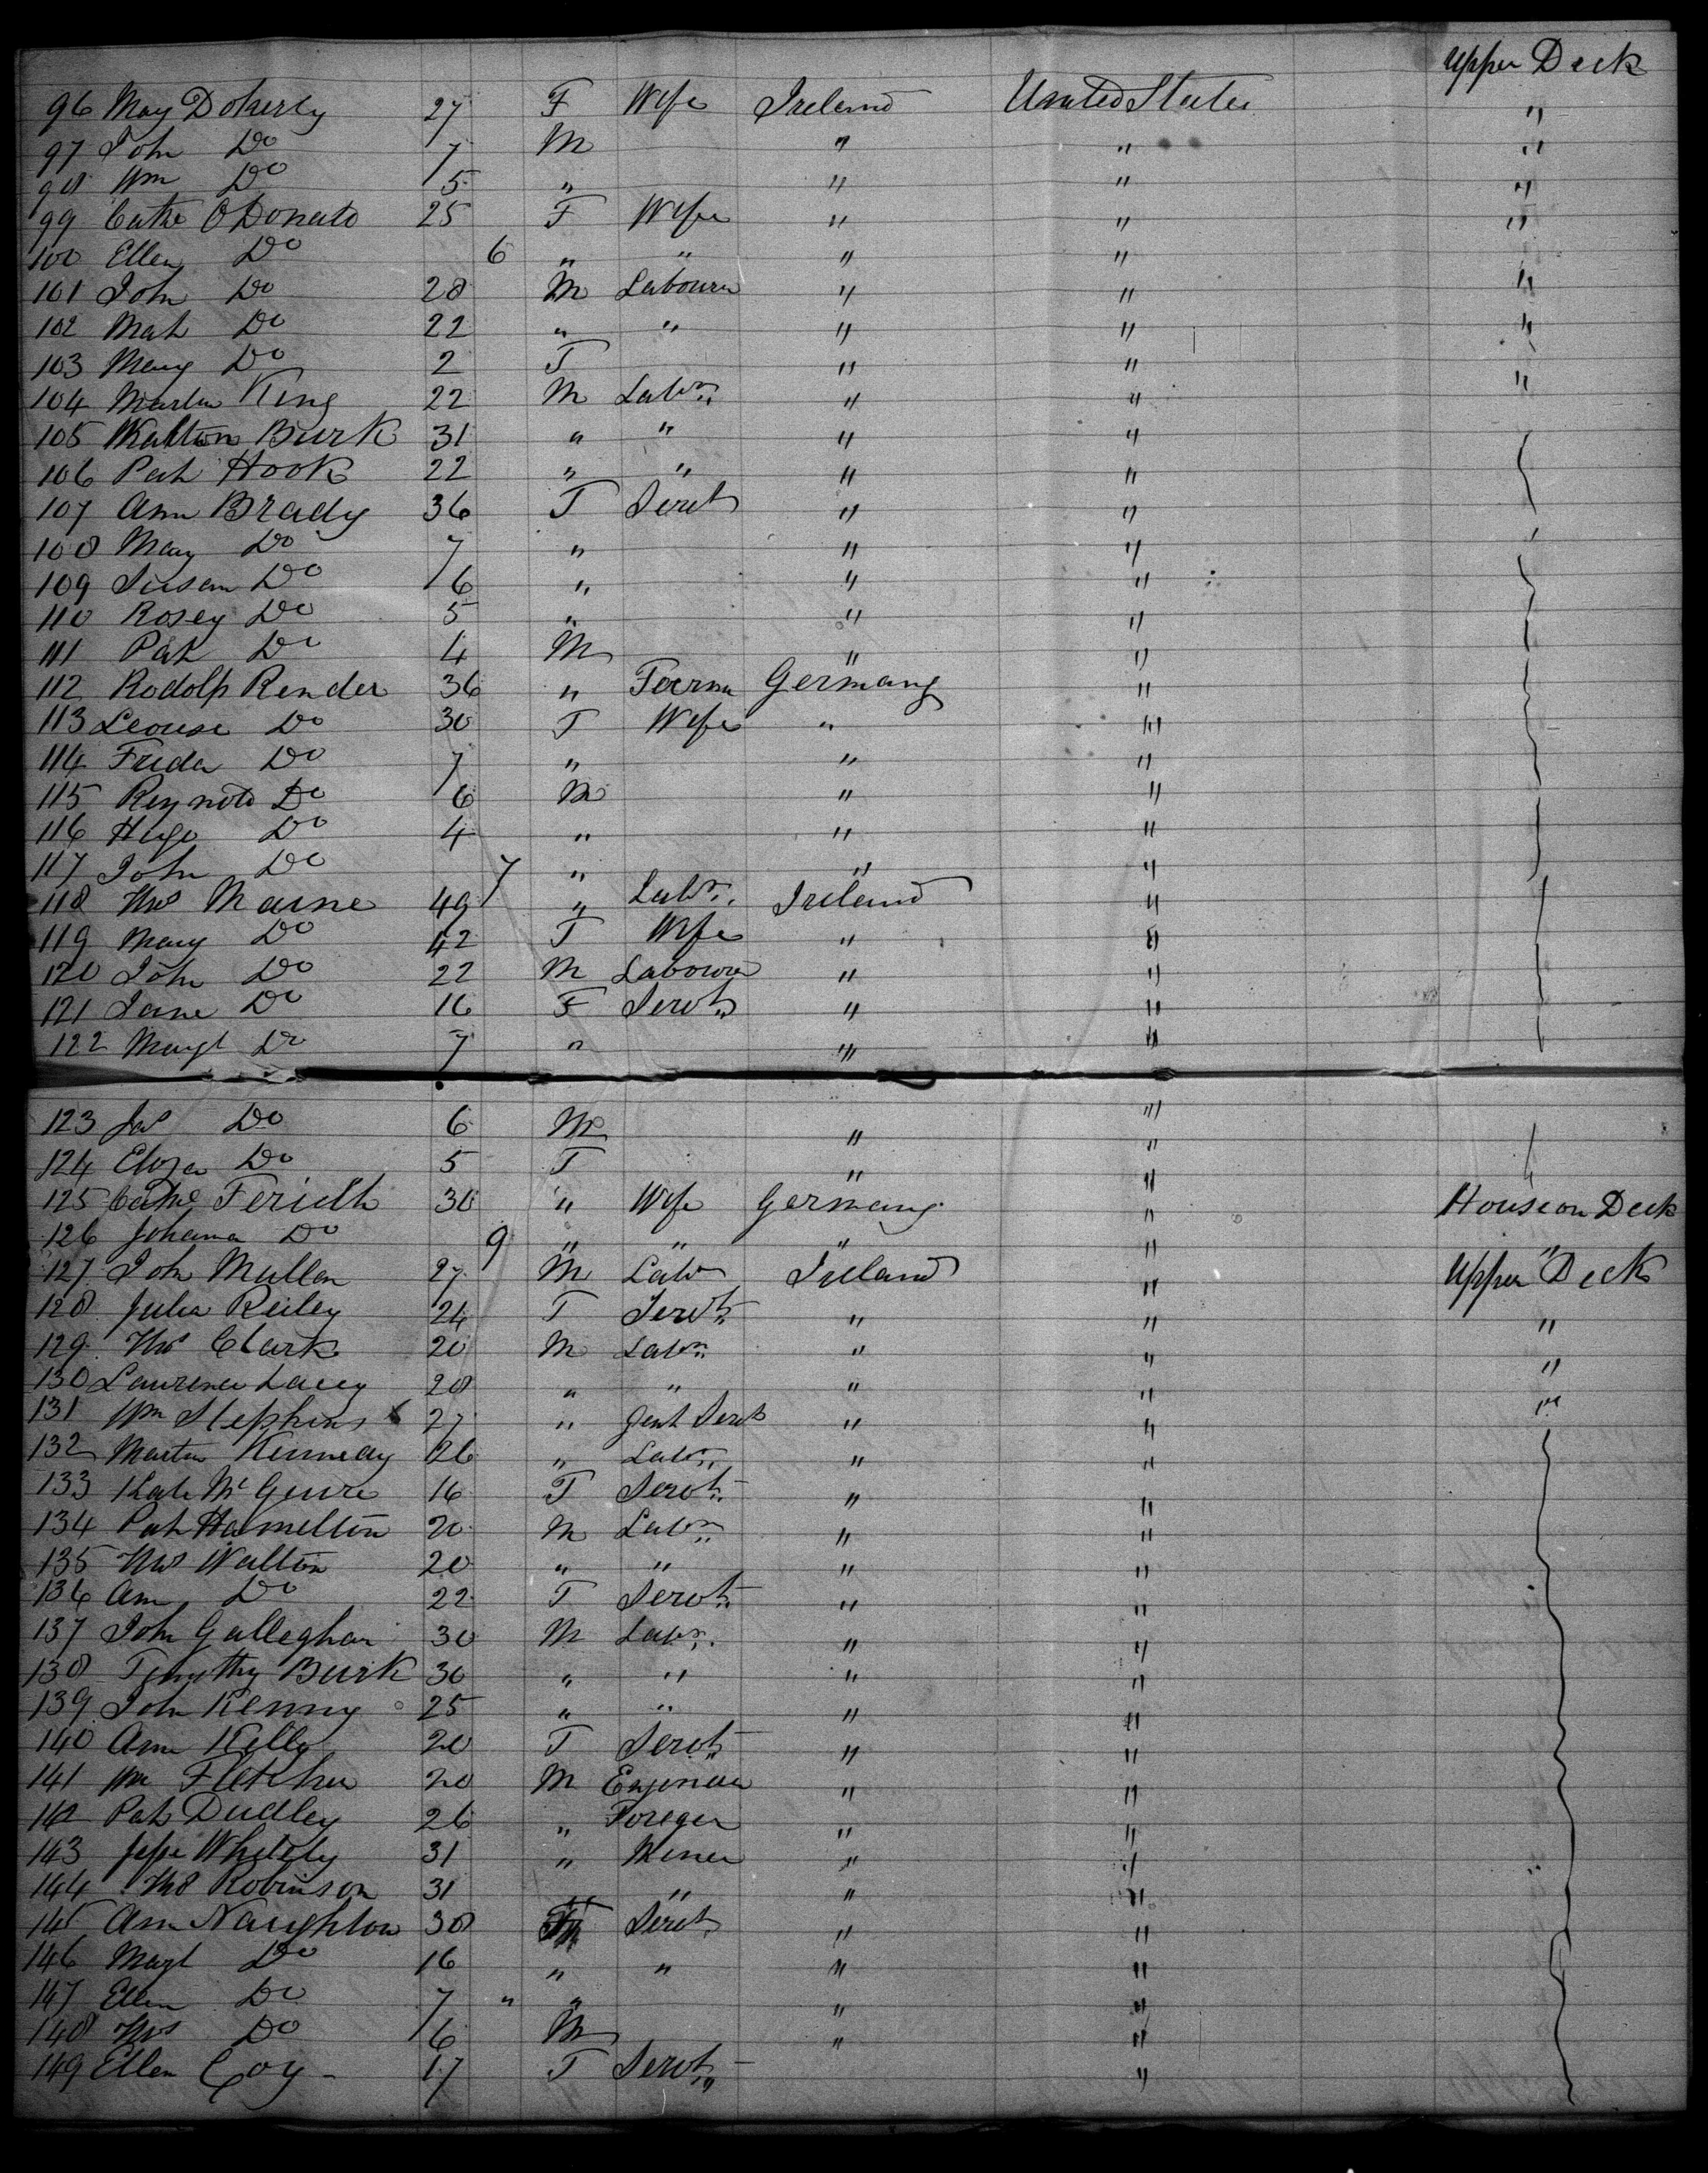 Upper Deck
96 May Doherty 27 F Wife Ireland United States "
97 John Do 7 M " " "
98 Wm Do 5 " " " "
99 Cathe O Donald 25 F Wife " " "
100 Ellen Do 6 " " " "
101 John Do 28 M Labourer " " "
102 Mah Do 22 " " " " "
103 Mary Do 2 F " " "
104 Martin King 22 M Labr " "
105 Walton Burk 31 " " " "
106 Pat Hook 22 " " " "
107 Ann Brady 36 F Servt " "
108 Mary Do 7 " " "
109 Susan Do 6 " " "
110 Rosey Do 5 " " "
111 Pat Do 4 M " "
112 Rodolph Render 36 " Farmr Germany "
113 Leouse Do 30 F Wife " "
114 Frida Do 7 " " "
115 Reynold Do 6 M " "
116 Hugo Do 4 " " "
117 John Do 7 " " "
118 Thos Marne 49 " Labr. Ireland "
119 Mary Do 42 F Wife " "
120 John Do 22 M Labourer " "
121 Jane Do 16 F Servt " "
122 Margt Do 7 " " "
123 Jas Do 6 M " "
124 Eliza Do 5 F " "
125 Cathe 30 " Wife Germany " House on Deck
126 Johanna Do 9 " " " " "
127 John Mullen 27 M Labr Ireland " Upper Deck
128 Julia Reiley 24 F Servt " " "
129 Thos Clark 20 M Labr " " "
130 Lawrence Lacey 28 " " " " "
131 Wm Stephens x 27 " Gent Servt " "
132 Martin Kenneay 26 " Labr " "
133 Kate McGuire 16 F Servt " "
134 Pat Hamelton 20 M Labr " "
135 Thos Walton 20 " " " "
136 Ann Do 22 F Servt " "
137 John Galleghan 30 M Labr. " "
138 Tymothy Burk 30 " " " "
139 John Kenny 25 " " " "
140 Ann Kelly 20 F Servt " "
141 Wm Fletcher 20 M Engeneer " "
142 Pat Dudley 26 " Foreger " "
143 Jesse Whitely 31 " Miner " "
144 Thos Robinson 31 " " "
145 Ann Naughton 38 F Servt " "
146 Margt Do 16 " " " "
147 Ellen Do 7 " " " "
148 Thos Do 6 M " "
149 Ellen Coy - 17 F Servt "